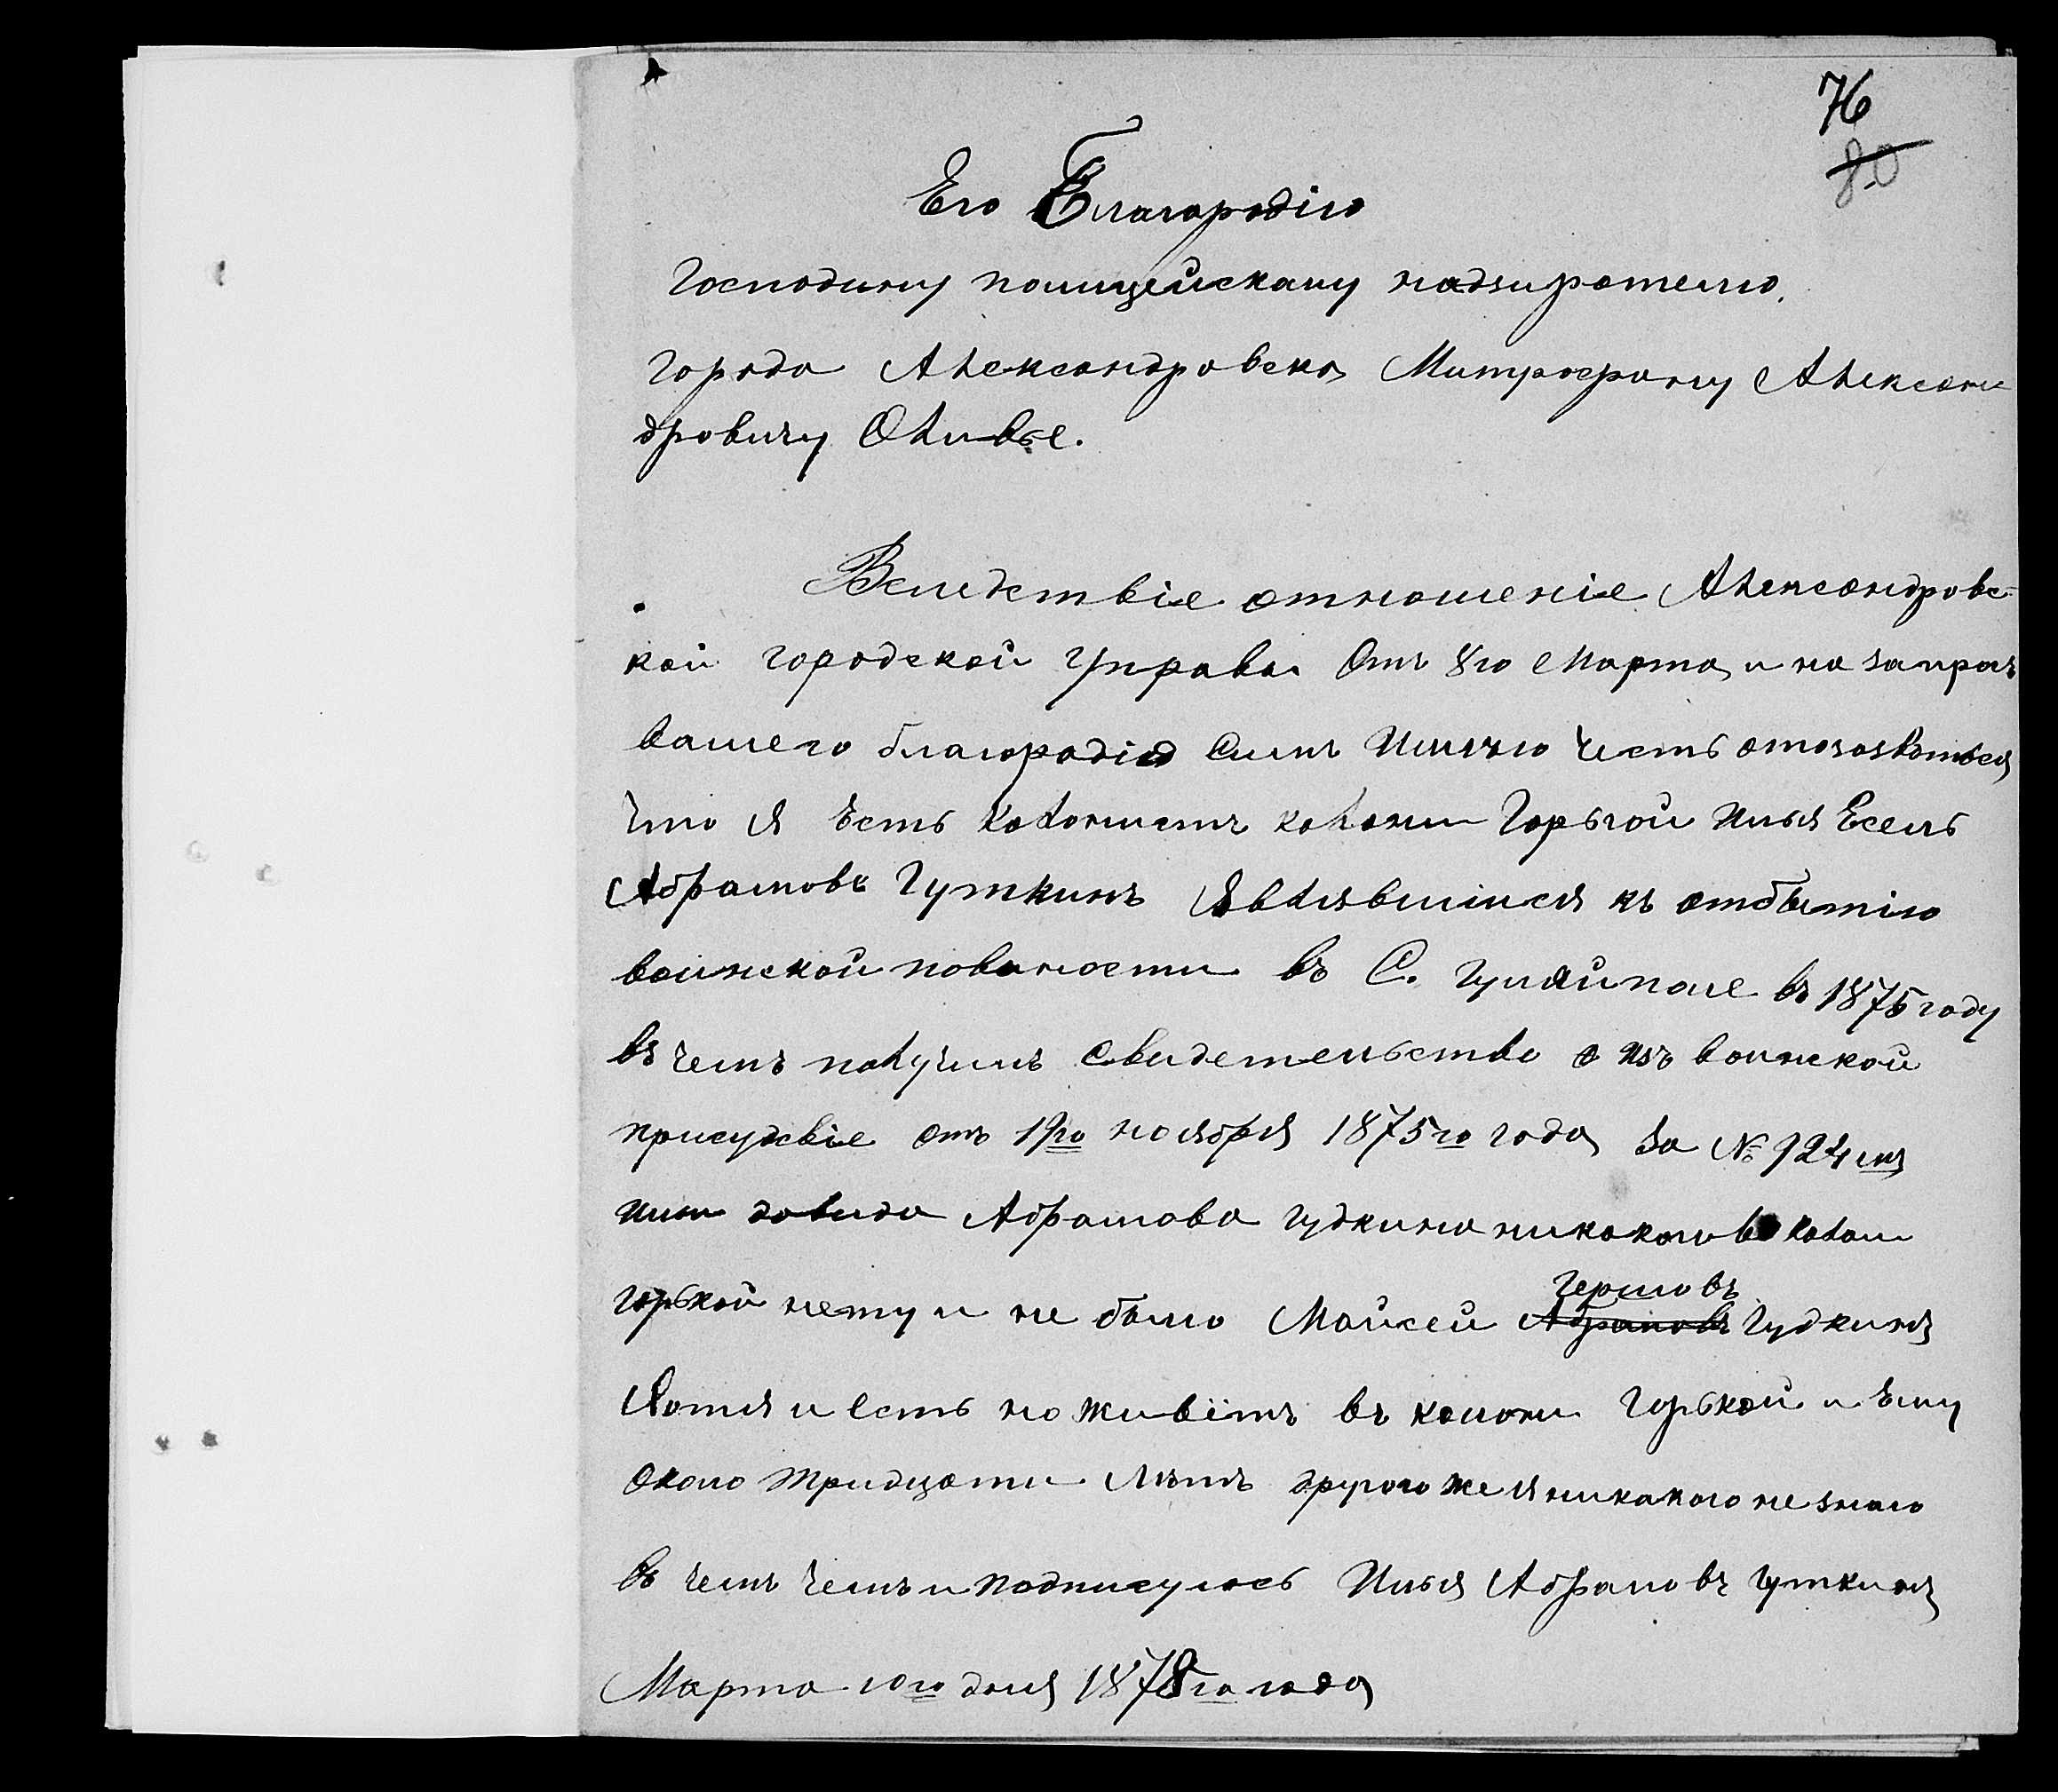 76
80
Его Благородію
Господину полицейскому надзирателю
города Александровска Митрофану Алексан
дровичу Оливье.
Вслидствіе отношеніе Александровс-
кой городской Управы Отъ 8го Марта и на запросъ
вашего благородія Симъ Имѣю Честь отозваться
Что Я Есть Колонистъ колони Горькой Илья Есель
Абрамовъ Гуткинъ Являвшійся къ отбытію
воинской повиности въ С. Гуляйполе въ 1875 году
въ чемъ получилъ Свидетельство о изъ воинской
присудквіе отъ 19го ноября 1875го года За № 924
или довида Абрамова гудкина никокого въ колони
горькой нету и не было Мойсей Абрамовъ Гершовъ Гудкинъ
Хотя и есть но живётъ въ колони Горькой и Ему
около тридцати Лѣтъ другого же я никакого не знаю
въ чемъ Чемъ и подписуюсь Илья Абрамовъ Гуткинъ
Марта 10го дня 1878го года